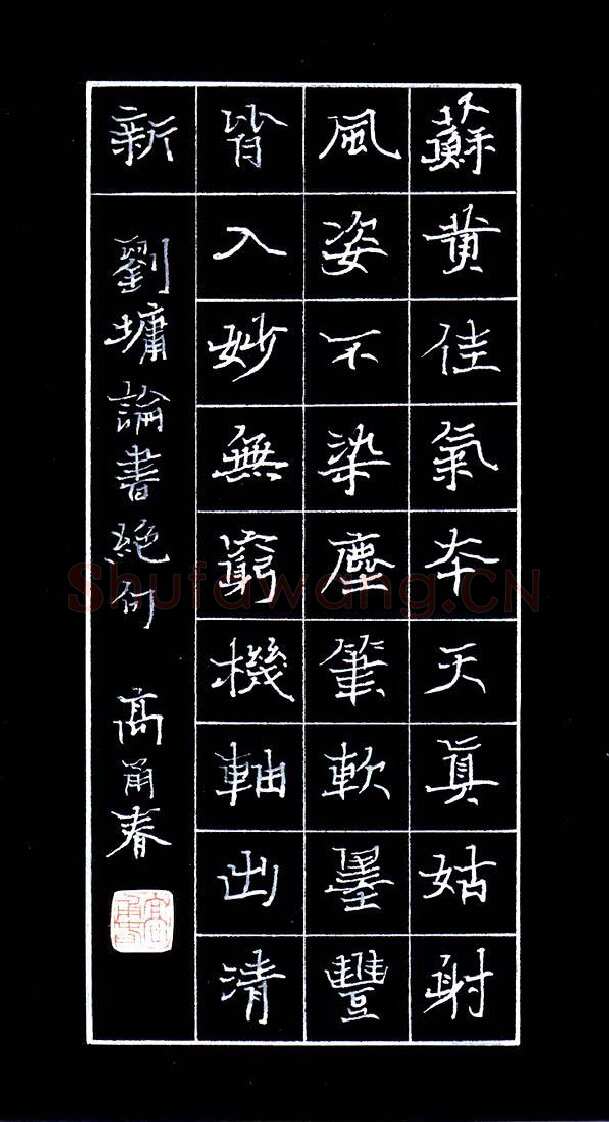 蘇黄佳氣本天真姑射
風姿不染塵筆軟墨豐
皆入妙無窮機軸出清
新
劉墉論書絶句 高甬春
Shufawang.CN